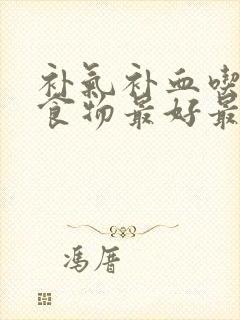 补氣补血喫
食物最好最
冯厝